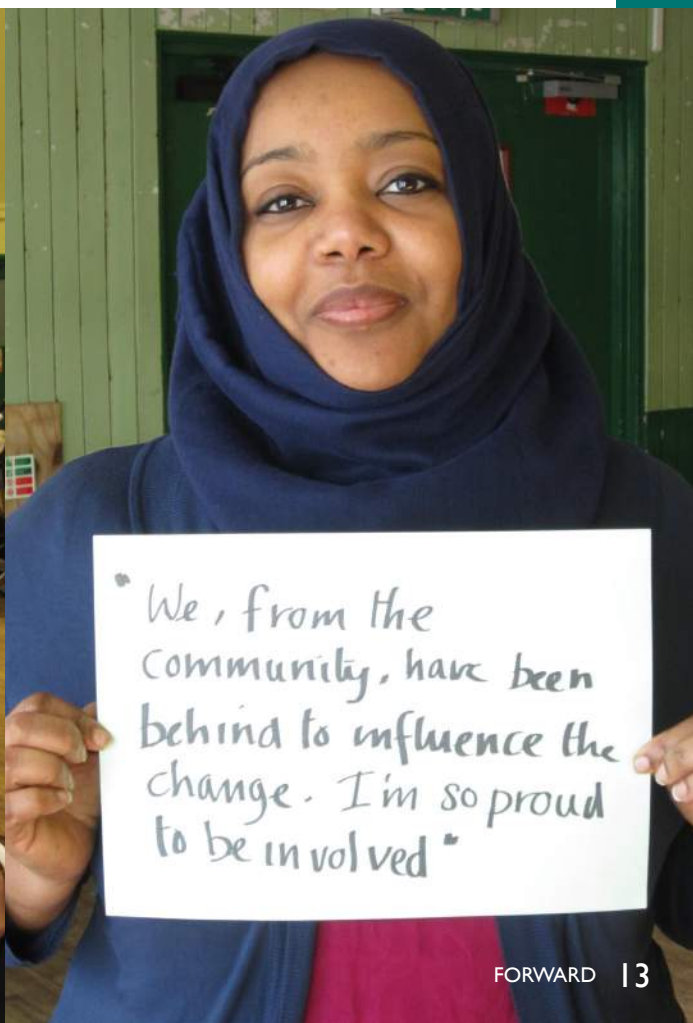 "We, from the
community, have been
behind to influence the
change. I'm so proud
to be involved"
FORWARD 13